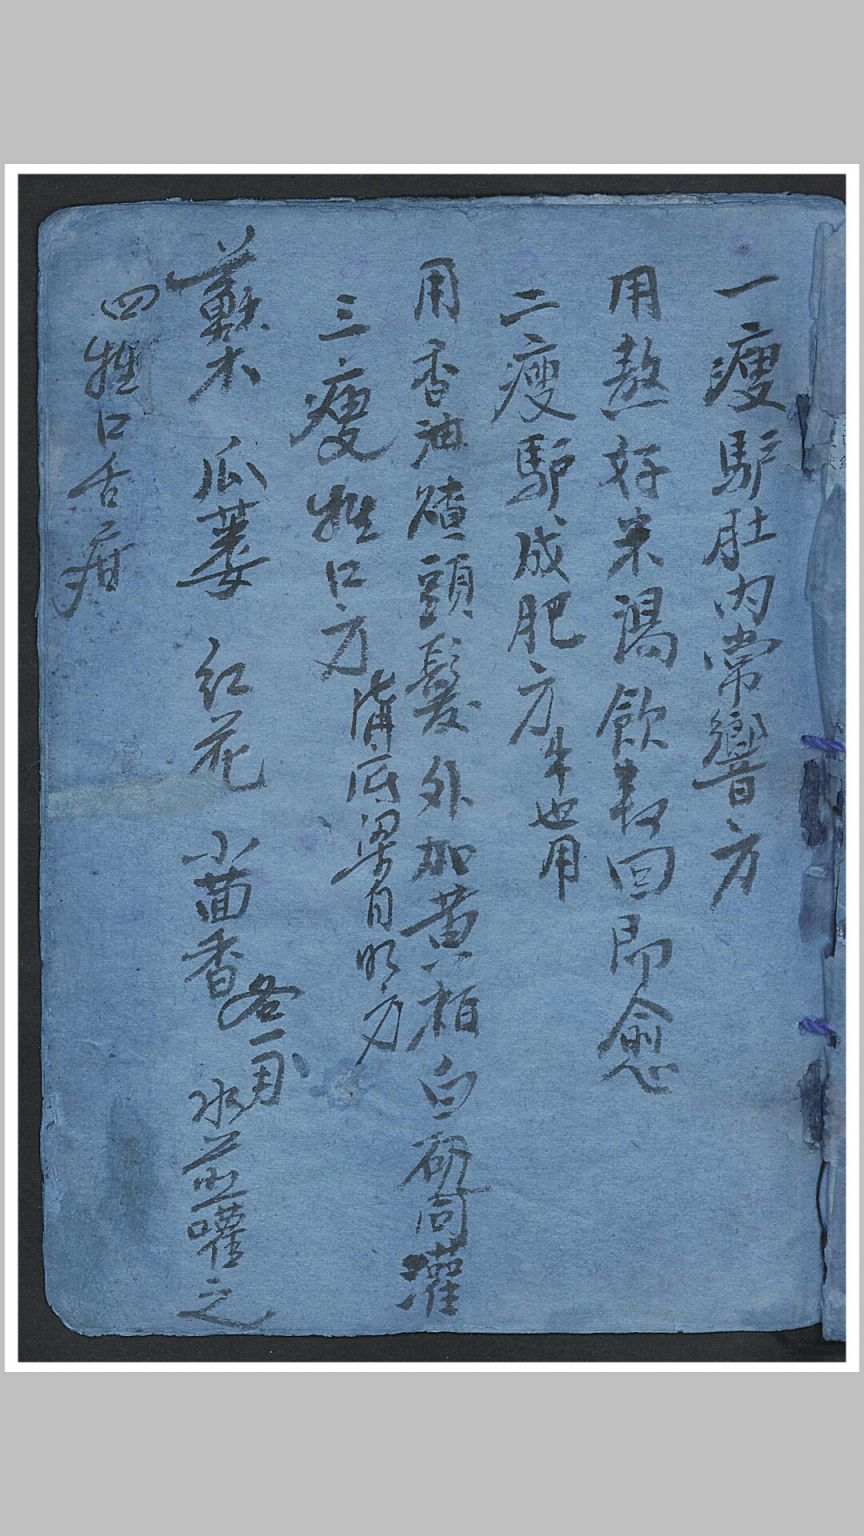 一瘦馿肚内常響方
用熬好米湯飲数回即愈
二瘦馿成肥方牛也用
用香油𤏪頭髮外加黄柏白礬同灌
三瘦牲口方
溝底梁自明方
蘇木 瓜蔞 红花 小茴香 各一両 水煎嚾之
四牲口舌疳